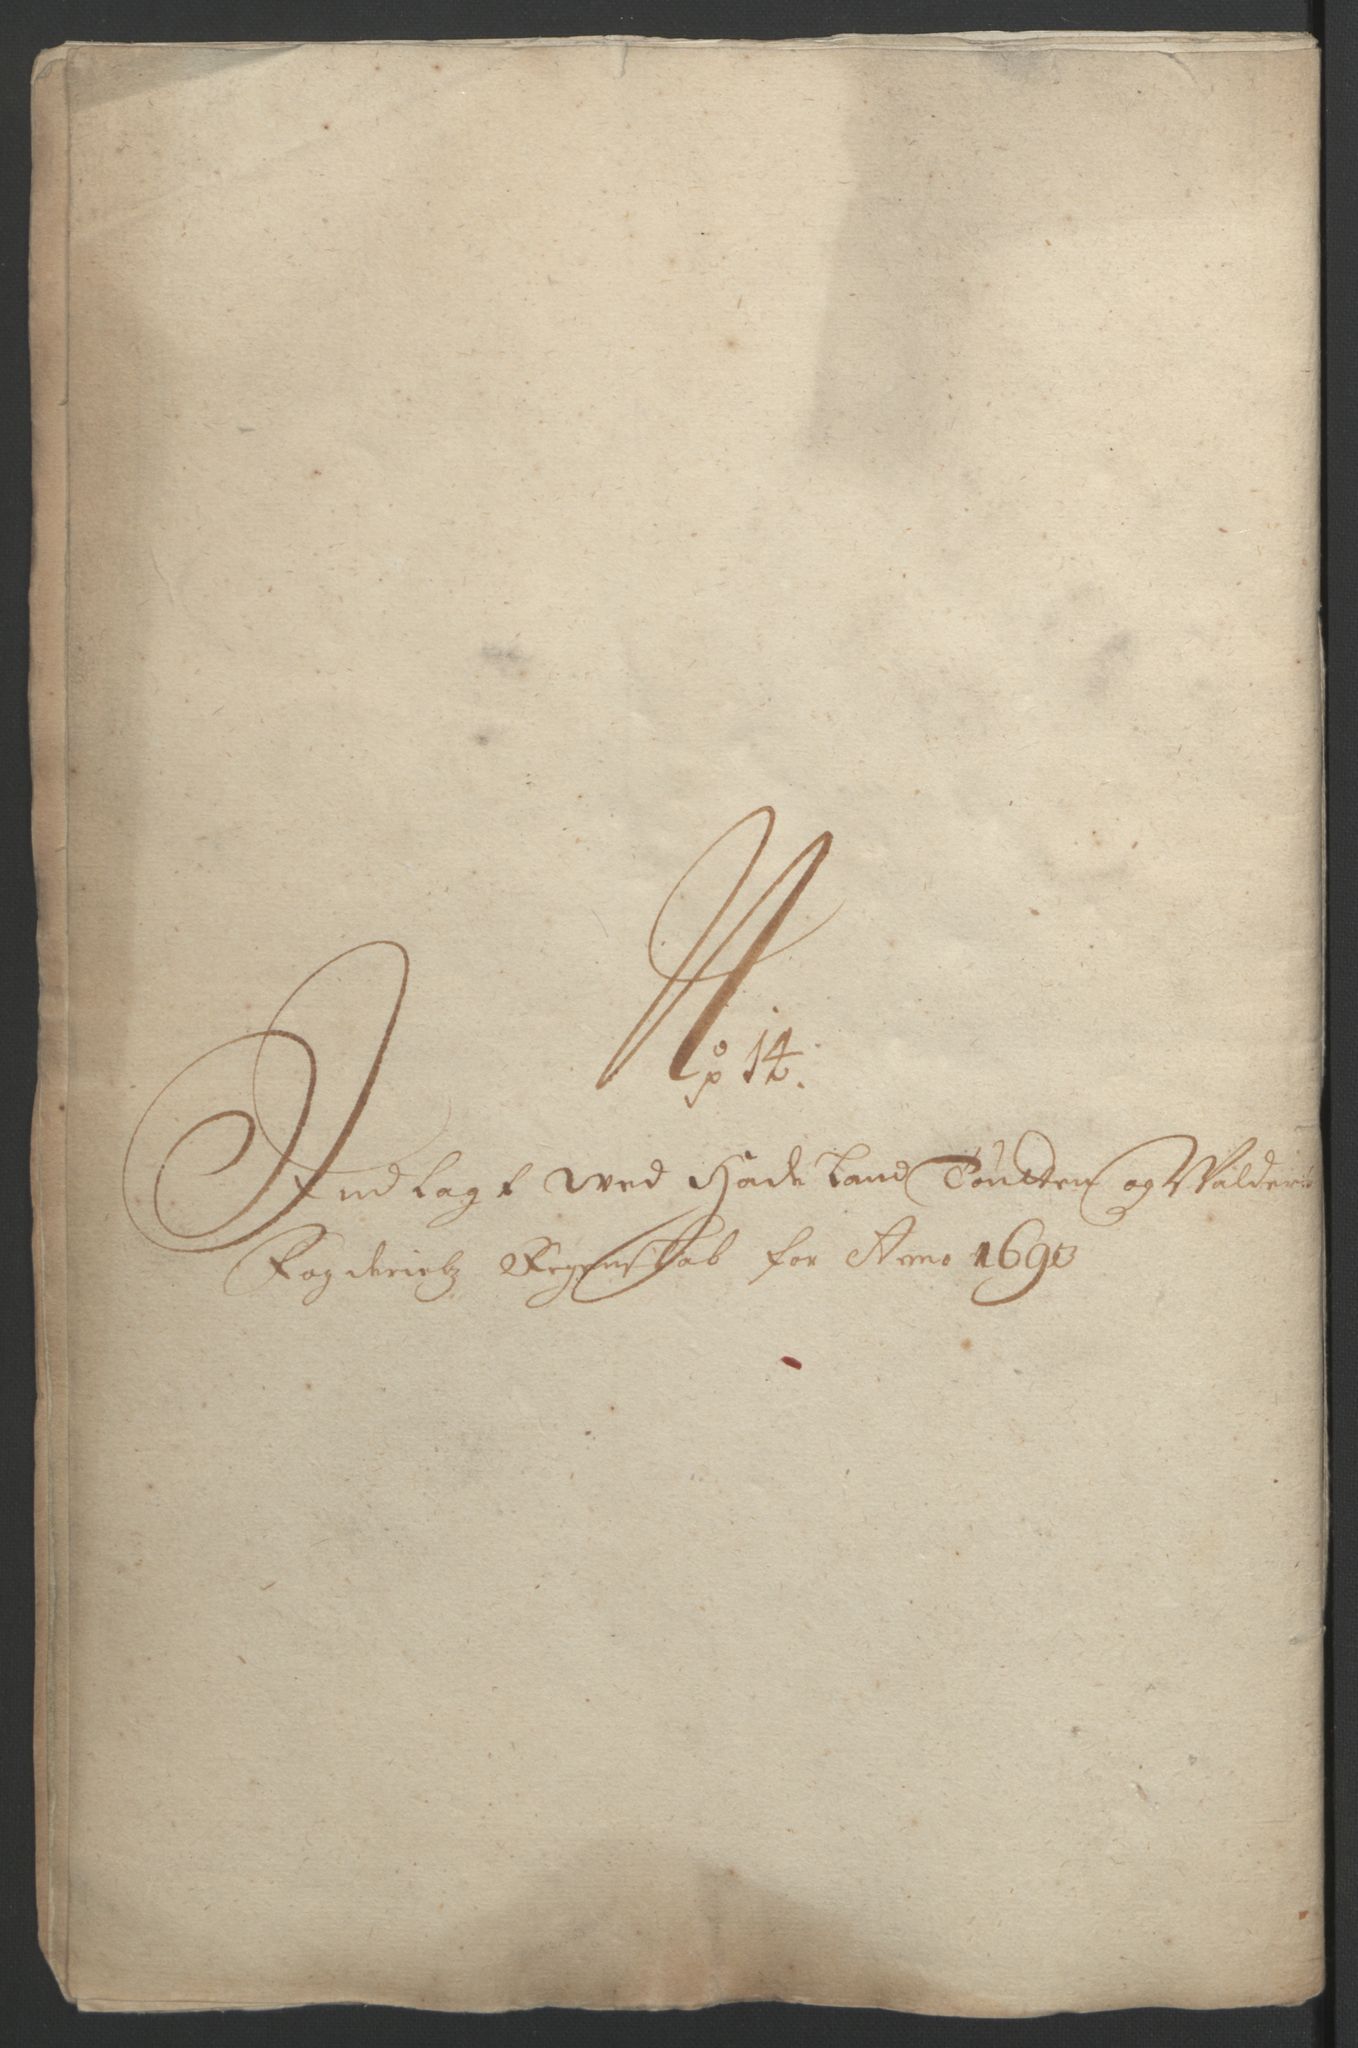 No 14.
Indlagt wed Hadeland Toutten og Valders
Fogderietz Regenskab for Anno 1693